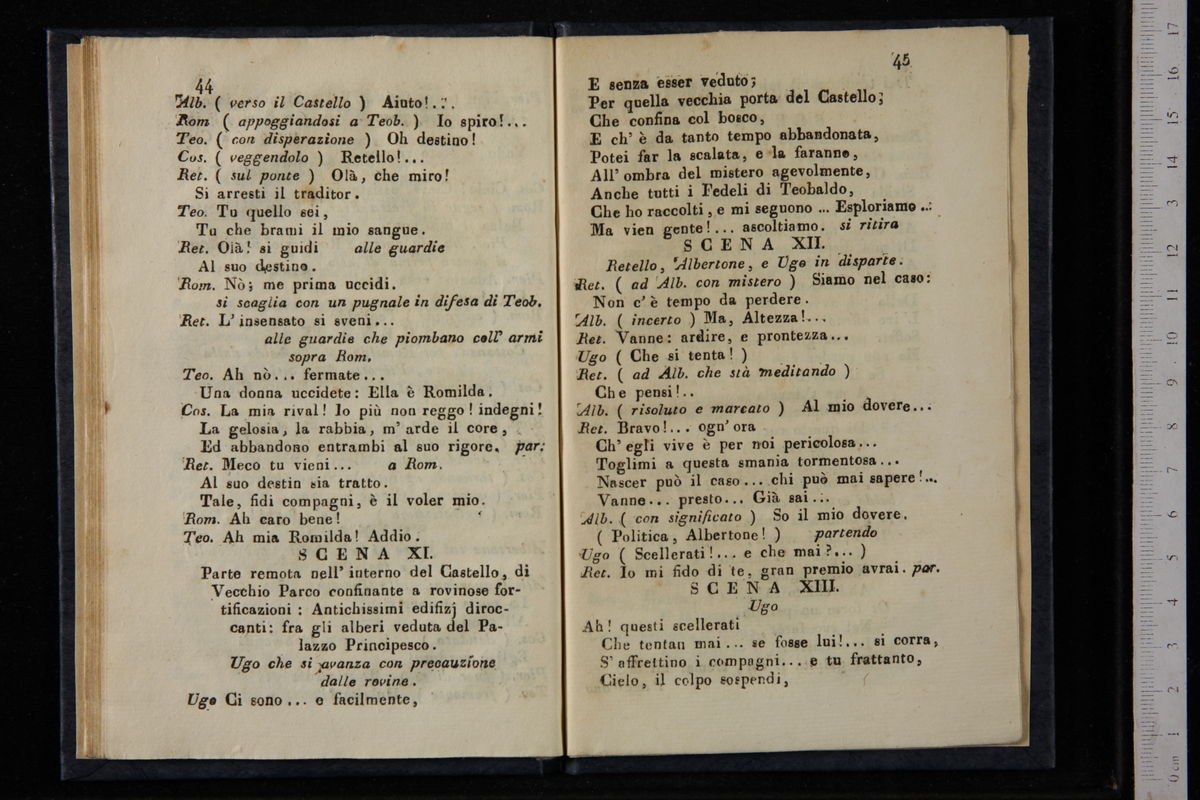 44
Alb. ( verso il Castello ) Aiuto!...
Rom ( appoggiandosi a Teob. ) Io spiro!...
Teo. ( con disperazione ) Oh destino!
Cos. ( veggendolo ) Retello!...
Ret. ( sul ponte ) Olà, che miro!
Si arresti il traditor.
Teo. Tu quello sei,
Tu che brami il mio sangue.
Ret. Olà! si guidi alle guardie
Al suo destino.
Rom. Nò; me prima uccidi.
si scaglia con un pugnale in difesa di Teob.
Ret. L' insensato si sveni...
alle guardie che piombano coll' armi
sopra Rom.
Teo. Ah nò... fermate...
Una donna uccidete: Ella è Romilda.
Cos. La mia rival! Io più non reggo! indegni!
La gelosia, la rabbia, m' arde il core,
Ed abbandono entrambi al suo rigore. par:
Ret. Meco tu vieni... a Rom.
Al suo destin sia tratto.
Tale, fidi compagni, è il voler mio.
Rom. Ah caro bene!
Teo. Ah mia Romilda! Addio.
SCENA XI.
Parte remota nell' interno del Castello, di
Vecchio Parco confinante a rovinose for-
tificazioni : Antichissimi edifizj diroc-
canti: fra gli alberi veduta del Pa-
lazzo Principesco.
Ugo che si avanza con precauzione
dalle rovine.
Ugo Ci sono... e facilmente,
45
E senza esser veduto;
Per quella vecchia porta del Castello;
Che confina col bosco,
E ch' è da tanto tempo abbandonata,
Potei far la scalata, e la faranno,
All' ombra del mistero agevolmente,
Anche tutti i Fedeli di Teobaldo,
Che ho raccolti, e mi seguono ... Esploriamo ...
Ma vien gente!... ascoltiamo. si ritira
SCENA XII.
Retello, Albertone, e Ugo in disparte.
Ret. ( ad Alb. con mistero ) Siamo nel caso:
Non c' è tempo da perdere.
Alb. ( incerto ) Ma, Altezza!...
Ret. Vanne: ardire, e prontezza...
Ugo ( Che si tenta! )
Ret. ( ad Alb. che stà meditando )
Che pensi!..
Alb. ( risoluto e marcato ) Al mio dovere...
Ret. Bravo!... ogn' ora
Ch' egli vive è per noi pericolosa...
Toglimi a questa smania tormentosa...
Nascer può il caso... chi può mai sapere!...
Vanne... presto... Già sai...
Alb. ( con significato ) So il mio dovere.
( Politica, Albertone! ) partendo
Ugo ( Scellerati!... e che mai?... )
Ret. Io mi fido di te, gran premio avrai. par.
SCENA XIII.
Ugo
Ah! questi scellerati
Che tentan mai... se fosse lui!... si corra,
S' affrettino i compagni... e tu frattanto,
Cielo, il colpo sospendi,